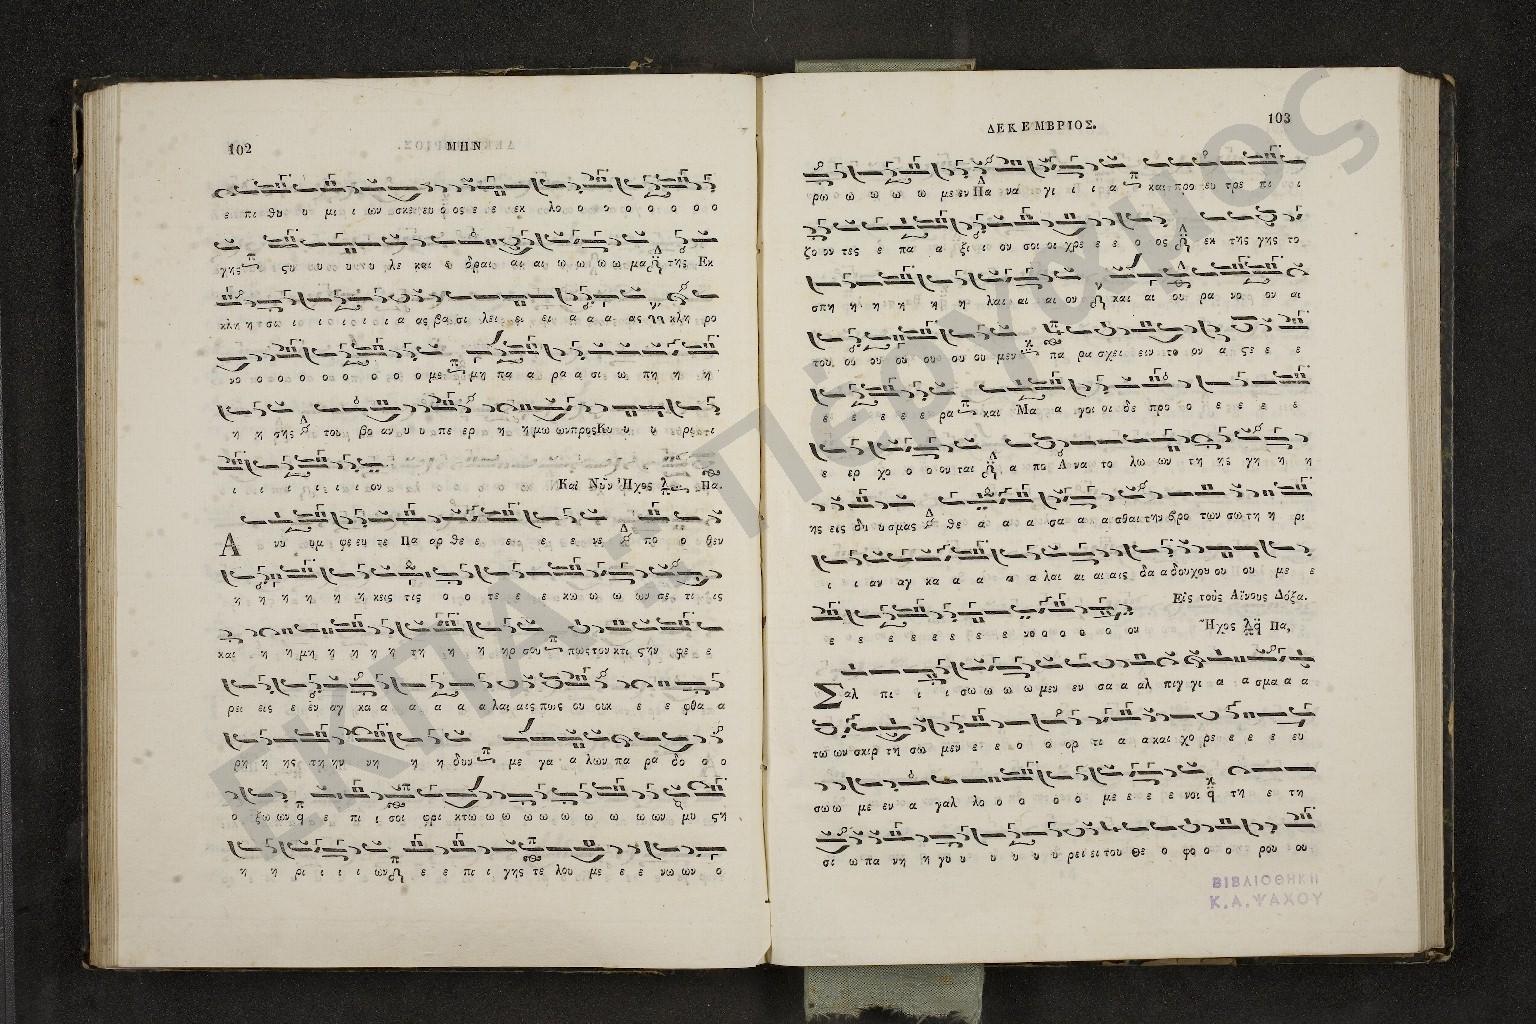 102
ΜΗΝ
ε πι θυ υ μι ι ων σκε ευ ο ος ε ε εκ λο ο ο ο ο ο ο ο
κλη η σω ι ι ι ι ι ι α ας βα σι λει ει ει α α α ας κλη ρο
νο ο ο ο ο ο ο ο ο ο με μη πα α ρα α σι ω πη η η
η η σης του βο αν υ υ πε ερ η η μω ων προς Κυ υ υ ρι
ι ι ι ι ι ι ι ον
Καὶ Νῦν Ἦχος Πα.
Α νυ υμ φε ευ τε Πα αρ θε ε ε ε ε ε νε πο ο θεν
η η η η η η η κεις τις ο ο τε ε ε κω ω ω ων σε τι ις
και η η μη η η η η τη η η ηρ σου πως του κτι ςην φε ε
ρει εις ε εν αγ κα α α α α α α λαι αις πως ου ουκ ε ε φθα α
ρη η ης τη ην νη η η δυν με γα α λων πα ρα δο ο ο
ο ξω ων ε πι ι σοι φρι κτω ω ω ω ω ω ω ω ω ων μυ ςη
η η ρι ι ι ι ων ε ε πι ι γης τε λου με ε ε νω ων ο
ΔΕΚΕΜΒΡΙΟΣ.
103
ρω ω ω ω ω με εν Πα να γι ι ι α και προ ευ τρε πι ι
ζο ον τες ε πα α ξι ι ου σοι οι χρε ε ε ο ος εκ της γης το
σπη η η η η η λαι αι αι ον και αι ου ρα νο ον αι
του ου ου ου ου ου ου μεν πα ρα σχει ειν το ον α ςε ε ε
ε ε ε ε ε ρα και Μα α γοι οι δε προ ο ε ε ε ε
ε ερ χο ο ο ον ται α πο Α να το λω ων τη ης γη η η
ης εις δυ υ σμας θε α α α σα α α σθαι την βρο των σω τη η ρι
ι ι αν αγ κα α α α α λαι αι αι αις δα α δου χου ου ου με ε
Εἰς τοὺς Αἴνους Δόξα.
ε ε ε ε ε ε ε ε ε νο ο ο ο ο ον
Ἦχος Πα,
Σαλ πι ι ι σω ω ω ω μεν εν σα α αλ πιγ γι α α σμα α α
τω ων σκιρ τη σω μεν ε ε ο ο ορ τι α α και χο ρε ε ε ε ευ
σω ω με εν α γαλ λο ο ο ο ο με ε ε ε νοι τη ε τη
σι ω πα νη η γυ υ υ υ υ υ ρει ει του Θε ο φο ο ο ρου ου
ΒΙΒΛΙΟΘΗΚΗ
Κ.Α.ΨΑΧΟΥ
ΕΚΠΑ
Πέργαμος